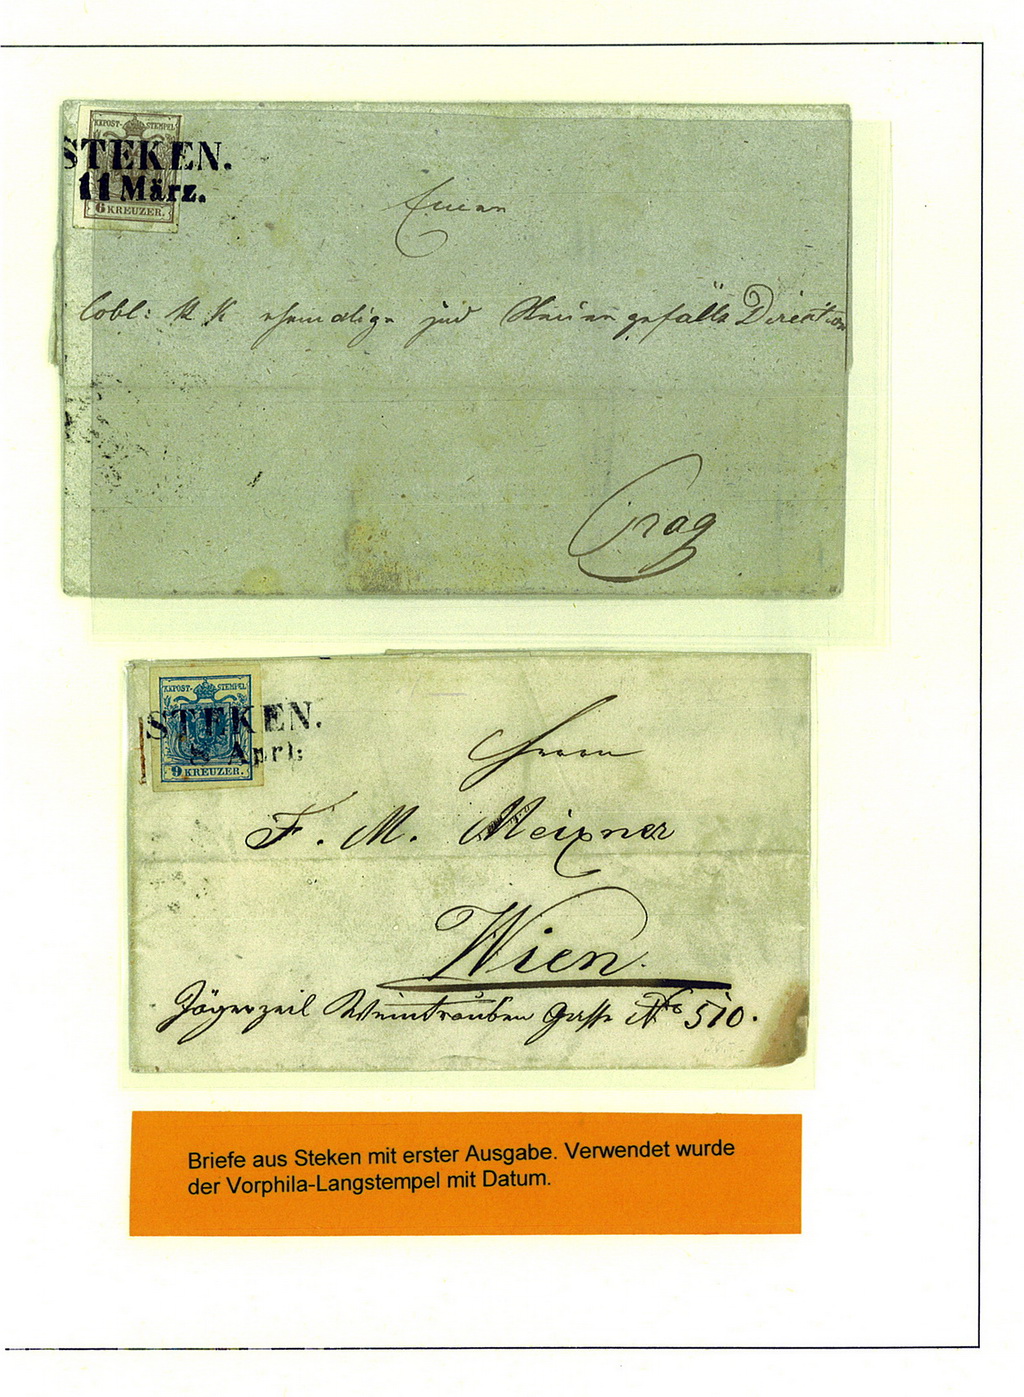 KKPOST-STEMPEL
STEKEN.
11 März.
6 KREUZER.
löbl: K K ehemalige jud Steuer gefälls Direktion
Prag
KKPOST-STEMPEL
STEKEN.
Aprl:
9 KREUZER.
Herrn
F. M. Meixner
Wien.
Jägerzeil Weintrauben Gasse No 510.
Briefe aus Steken mit erster Ausgabe. Verwendet wurde
der Vorphila-Langstempel mit Datum.